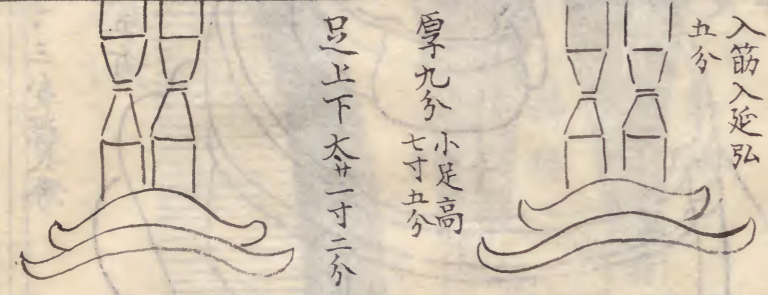 入筋入延弘
五分
厚子九分 小足高
七寸五分
足上下太サ一寸二分